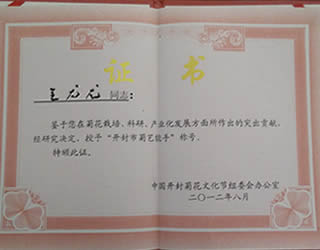 证 书
王龙龙 同志：
鉴于您在菊花栽培、科研、产业化发展方面所作出的突出贡献，
经研究决定，授予“开封市菊艺能手”称号。
特颁此证。
中国开封菊花文化节组委会办公室
二〇一二年八月